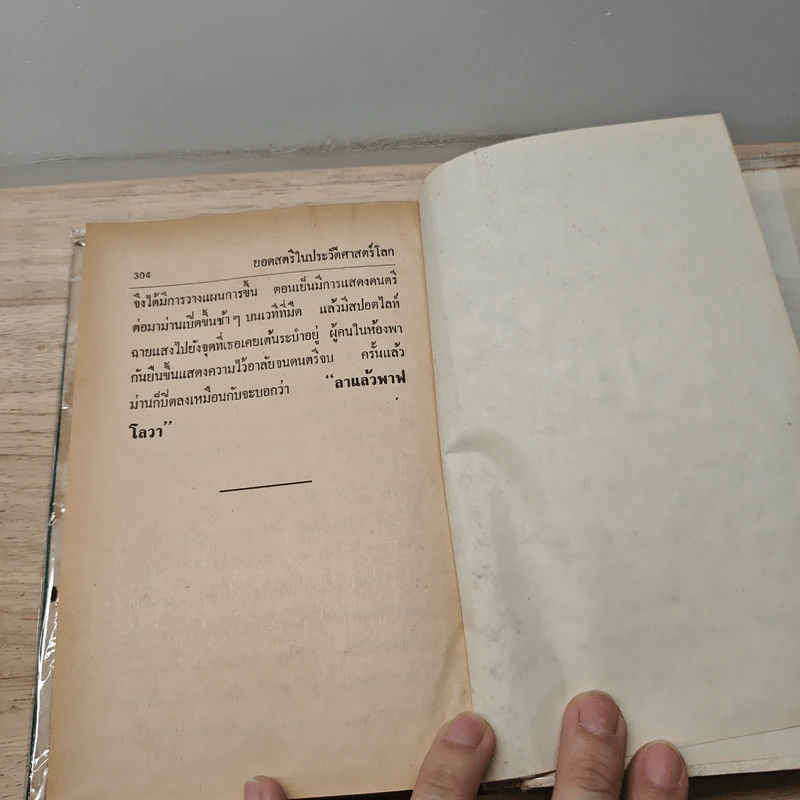 304 ยอดสตรีในประวัติศาสตร์โลก
จึงได้มีการวางแผนการขึ้น ตอนเย็นมีการแสดงดนตรี
ต่อมาม่านเปิดขึ้นช้า ๆ บนเวทีที่มืด แล้วมีสปอตไลท์
ฉายแสงไปยังจุดที่เธอเคยเต้นระบำอยู่ ผู้คนในห้องพา
กันยืนขึ้นแสดงความไว้อาลัยจนดนตรีจบ ครั้นแล้ว
ม่านก็ปิดลงเหมือนกับจะบอกว่า “ลาแล้วพาฟ
โลวา”